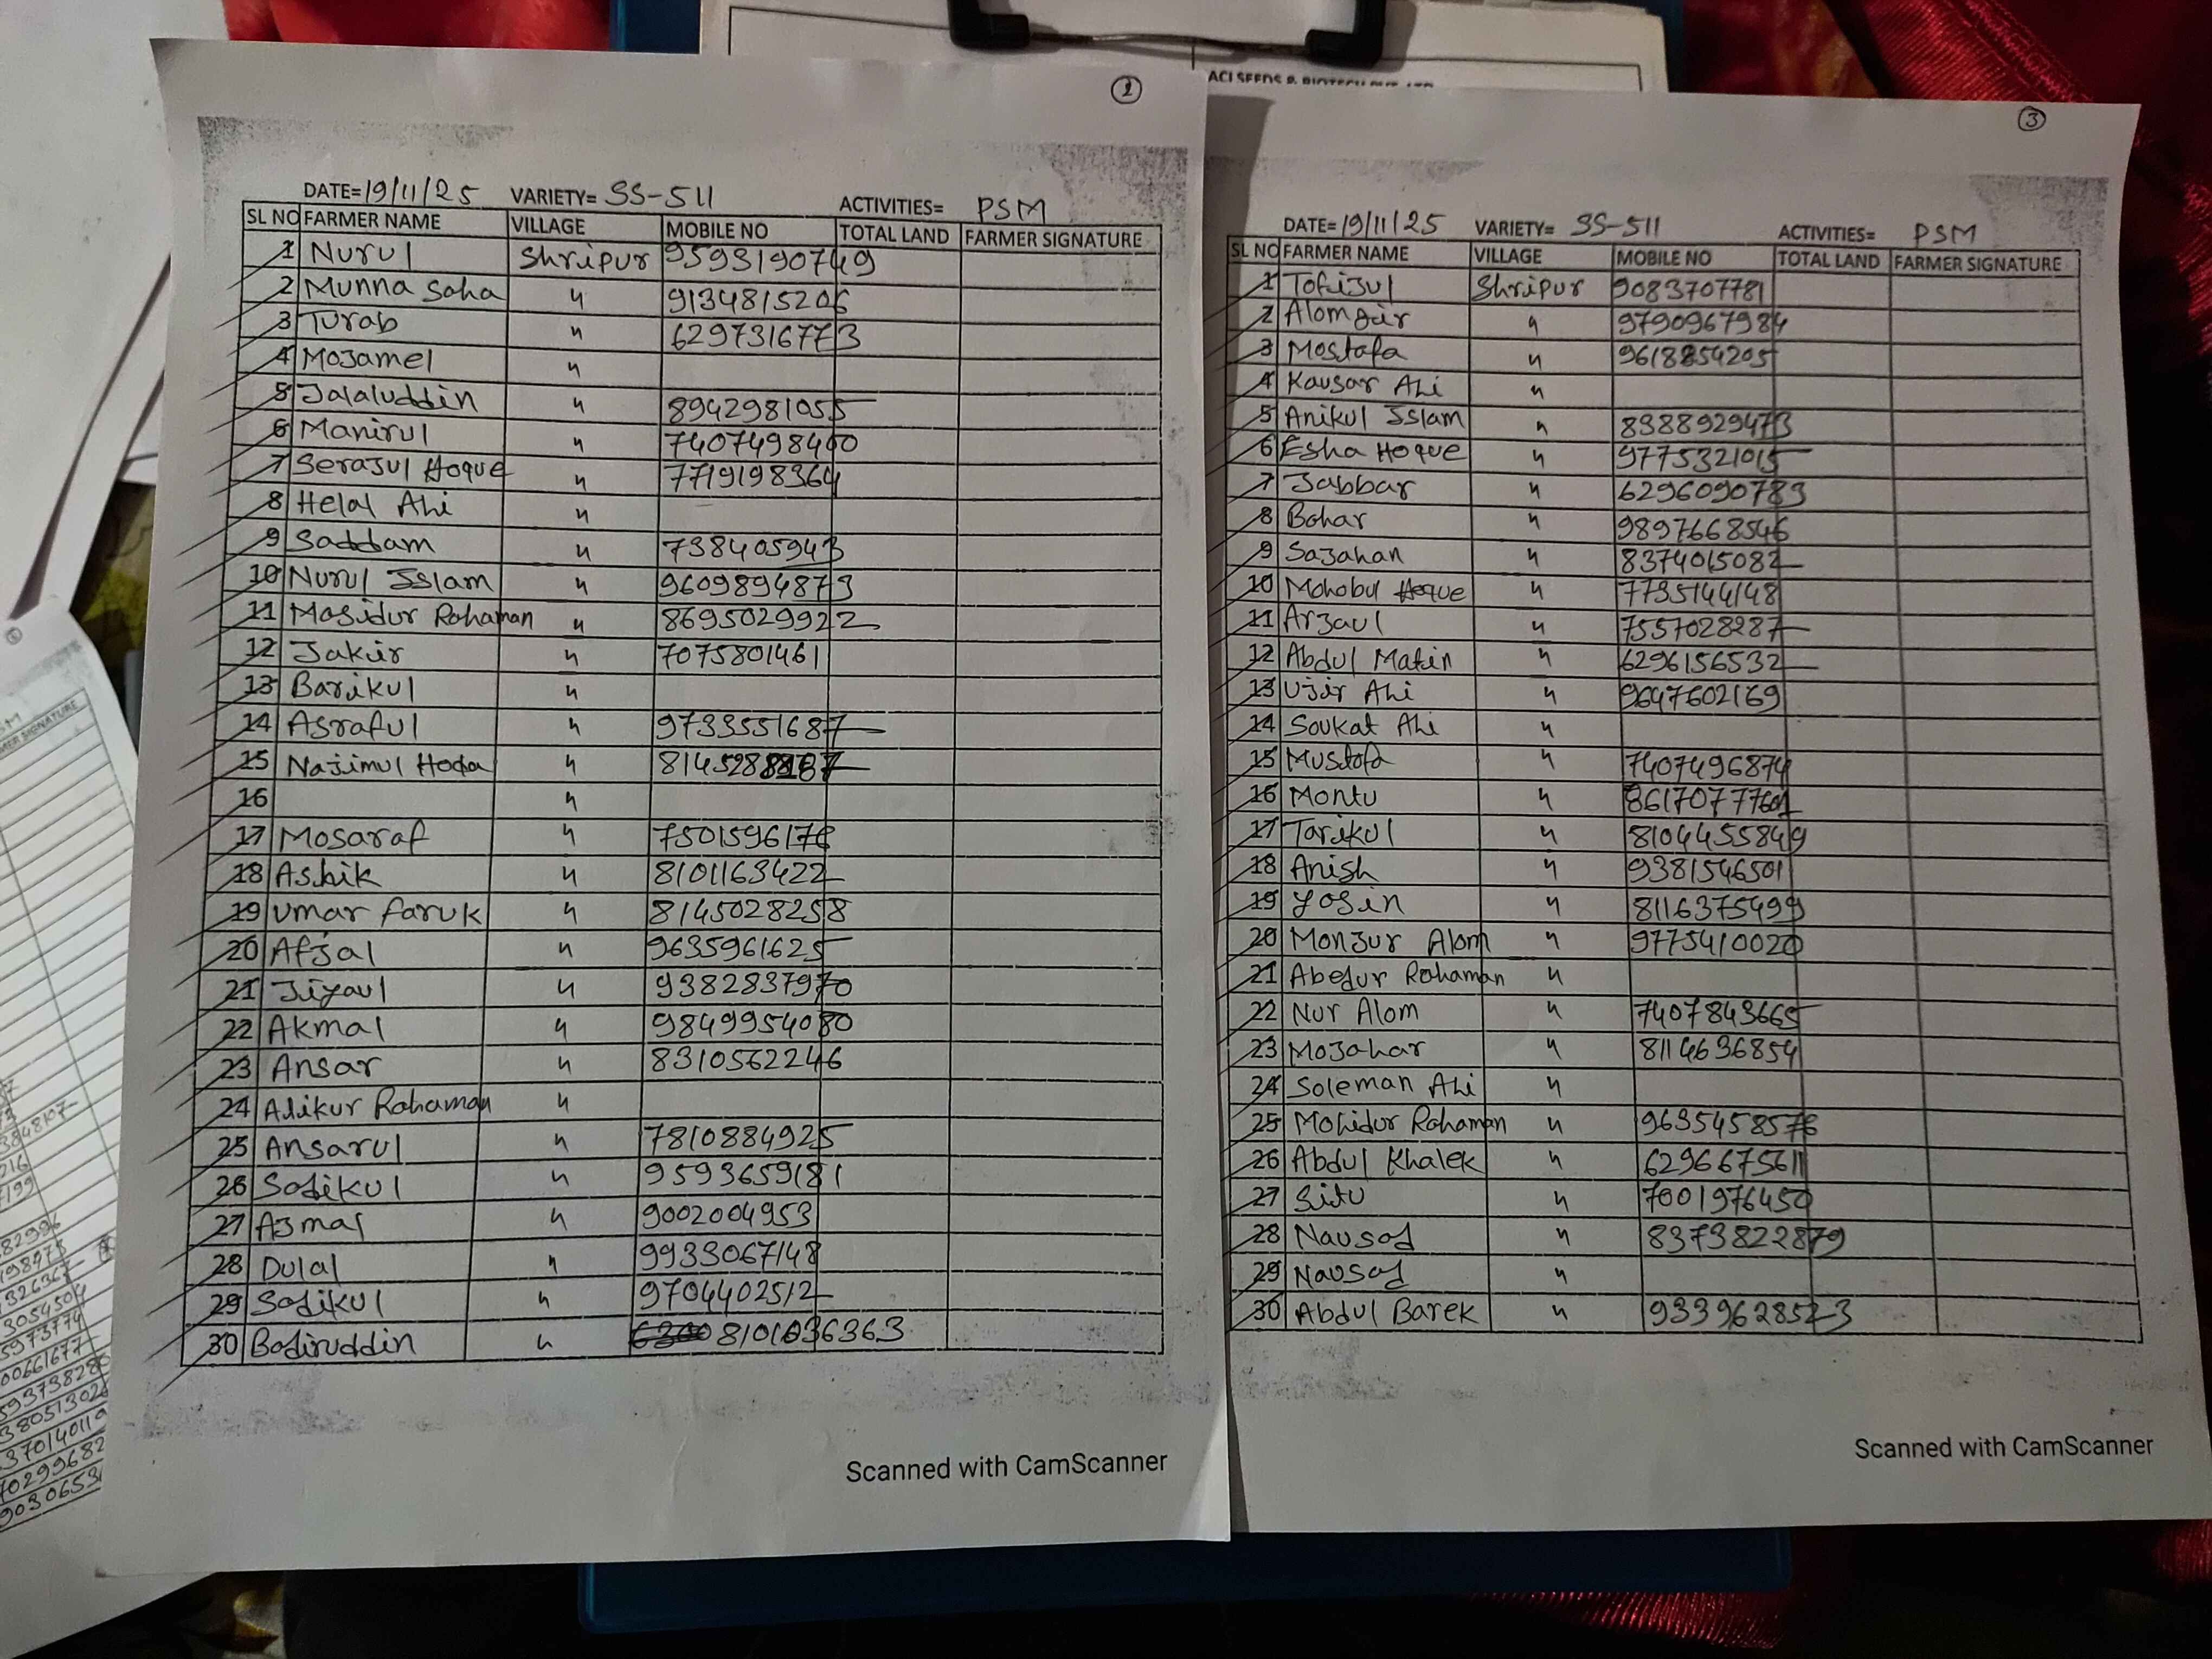 ACI SEEDS & BIOTECH PVT. LTD
2
DATE=19/11/25 VARIETY= SS-511 ACTIVITIES= PSM
SL NO FARMER NAME VILLAGE MOBILE NO TOTAL LAND FARMER SIGNATURE
1 Nurul Shripur 9593190749
2 Munna Saha " 9134815206
3 Turab " 6297316773
4 Mojamel "
5 Jalaluddin " 8942981055
6 Manirul " 7407498400
7 Serajul Hoque " 7719198364
8 Helal Ali "
9 Saddam " 738405943
10 Nurul Islam " 9609894873
11 Masidur Rahaman " 8695029922
12 Jakir " 7075801461
13 Barikul "
14 Asraful " 9733551687
15 Najimul Hoda "
16 "
17 Mosaraf " 7501596178
18 Ashik " 8101163422
19 Umar faruk " 8145028258
20 Afjal " 9635961625
21 Jiyaul " 9382837970
22 Akmal " 9849954080
23 Ansar " 8310562246
24 Rahaman "
25 Ansarul " 7810884925
26 Sadikul " 9593659181
27 Ajmal " 9002004953
28 Dulal " 9933067148
29 Sadikul " 9704402512
30 Badiruddin " 8101036363
Scanned with CamScanner
3
DATE=19/11/25 VARIETY= SS-511 ACTIVITIES= PSM
SL NO FARMER NAME VILLAGE MOBILE NO TOTAL LAND FARMER SIGNATURE
1 Tofijul Shripur 9083707781
2 Alomgir " 9790967984
3 Mostafa " 9618854205
4 Kausar Ali "
5 Anikul Islam " 8388929473
6 Esha Hoque " 9775321015
7 Jabbar " 6296090783
8 Bahar " 9897668546
9 Sajahan " 8374015082
10 Mohobul Hoque " 7735144148
11 Arjaul " 7557028287
12 Abdul Matin " 6296156532
13 Ujir Ali " 9647602169
14 Soukat Ali "
15 Mustafa " 7407496874
16 Montu "
17 Tarikul " 8104455849
18 Anish " 9381546501
19 Yosin " 8116375499
20 Monjur Alom " 9775410020
21 Abedur Rahaman "
22 Nur Alom " 7407843665
23 Mojahar " 8114636854
24 Soleman Ali "
25 Mohidur Rahaman " 9635458576
26 Abdul Khalek " 6296675611
27 Situ " 7001976450
28 Nausad " 8373822879
29 Nausad "
30 Abdul Barek " 9339628523
Scanned with CamScanner